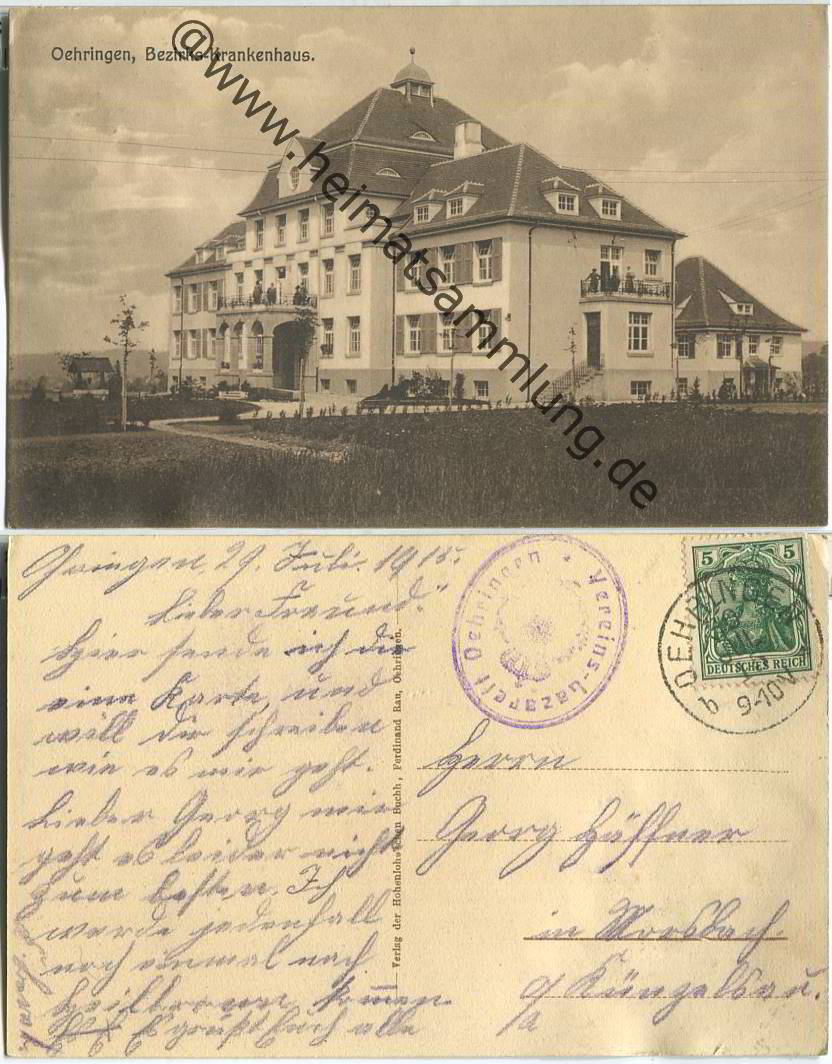 Oehringen, Bezirks-Krankenhaus.
@www.heimatsammlung.de
Öhringen, 29. Juli. 1915.
Lieber Freund."
Hier sende ich dir
eine Karte, und
will dir schreiben
wie es mir geht.
Lieber Georg mir
geht es leider nicht
zum besten. Ich
werde jedenfall
noch einmal nach
Heilbronn komen.
Es grüßt Euch alle
Verlag der Hohenlohe'schen Buchh, Ferdinand Rau, Oehringen.
Vereins-Lazarett Oehringen
5 5
DEUTSCHES REICH
OEHRINGEN
9-10V
b
Herrn
Georg Häffner
in Morsbach.
a/ Künzelsau.